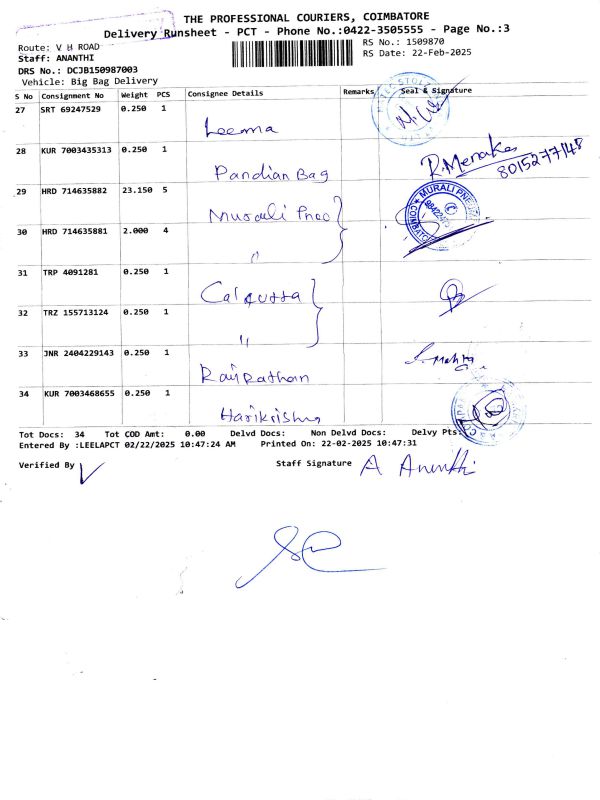 THE PROFESSIONAL COURIERS, COIMBATORE
Delivery Runsheet - PCT - Phone No.:0422-3505555 - Page No.:3
Route: V H ROAD
RS No.: 1509870
Staff: ANANTHI
RS Date: 22-Feb-2025
DRS No.: DCJB150987003
Vehicle: Big Bag Delivery
S No Consignment No Weight PCS Consignee Details Remarks Seal & Signature
27 SRT 69247529 0.250 1
Leema
28 KUR 7003435313 0.250 1
Pandian Bag R. Menaka
8015277148
29 HRD 714635882 23.150 5
Murali Pneo MURALI
30 HRD 714635881 2.000 4
"
31 TRP 4091281 0.250 1
Calcutta
32 TRZ 155713124 0.250 1
"
33 JNR 2404229143 0.250 1
Rajrathan
34 KUR 7003468655 0.250 1
Harikrishna
Tot Docs: 34 Tot COD Amt: 0.00 Delvd Docs: Non Delvd Docs: Delvy Pts:
Entered By :LEELAPCT 02/22/2025 10:47:24 AM Printed On: 22-02-2025 10:47:31
Verified By Staff Signature A Ananthi